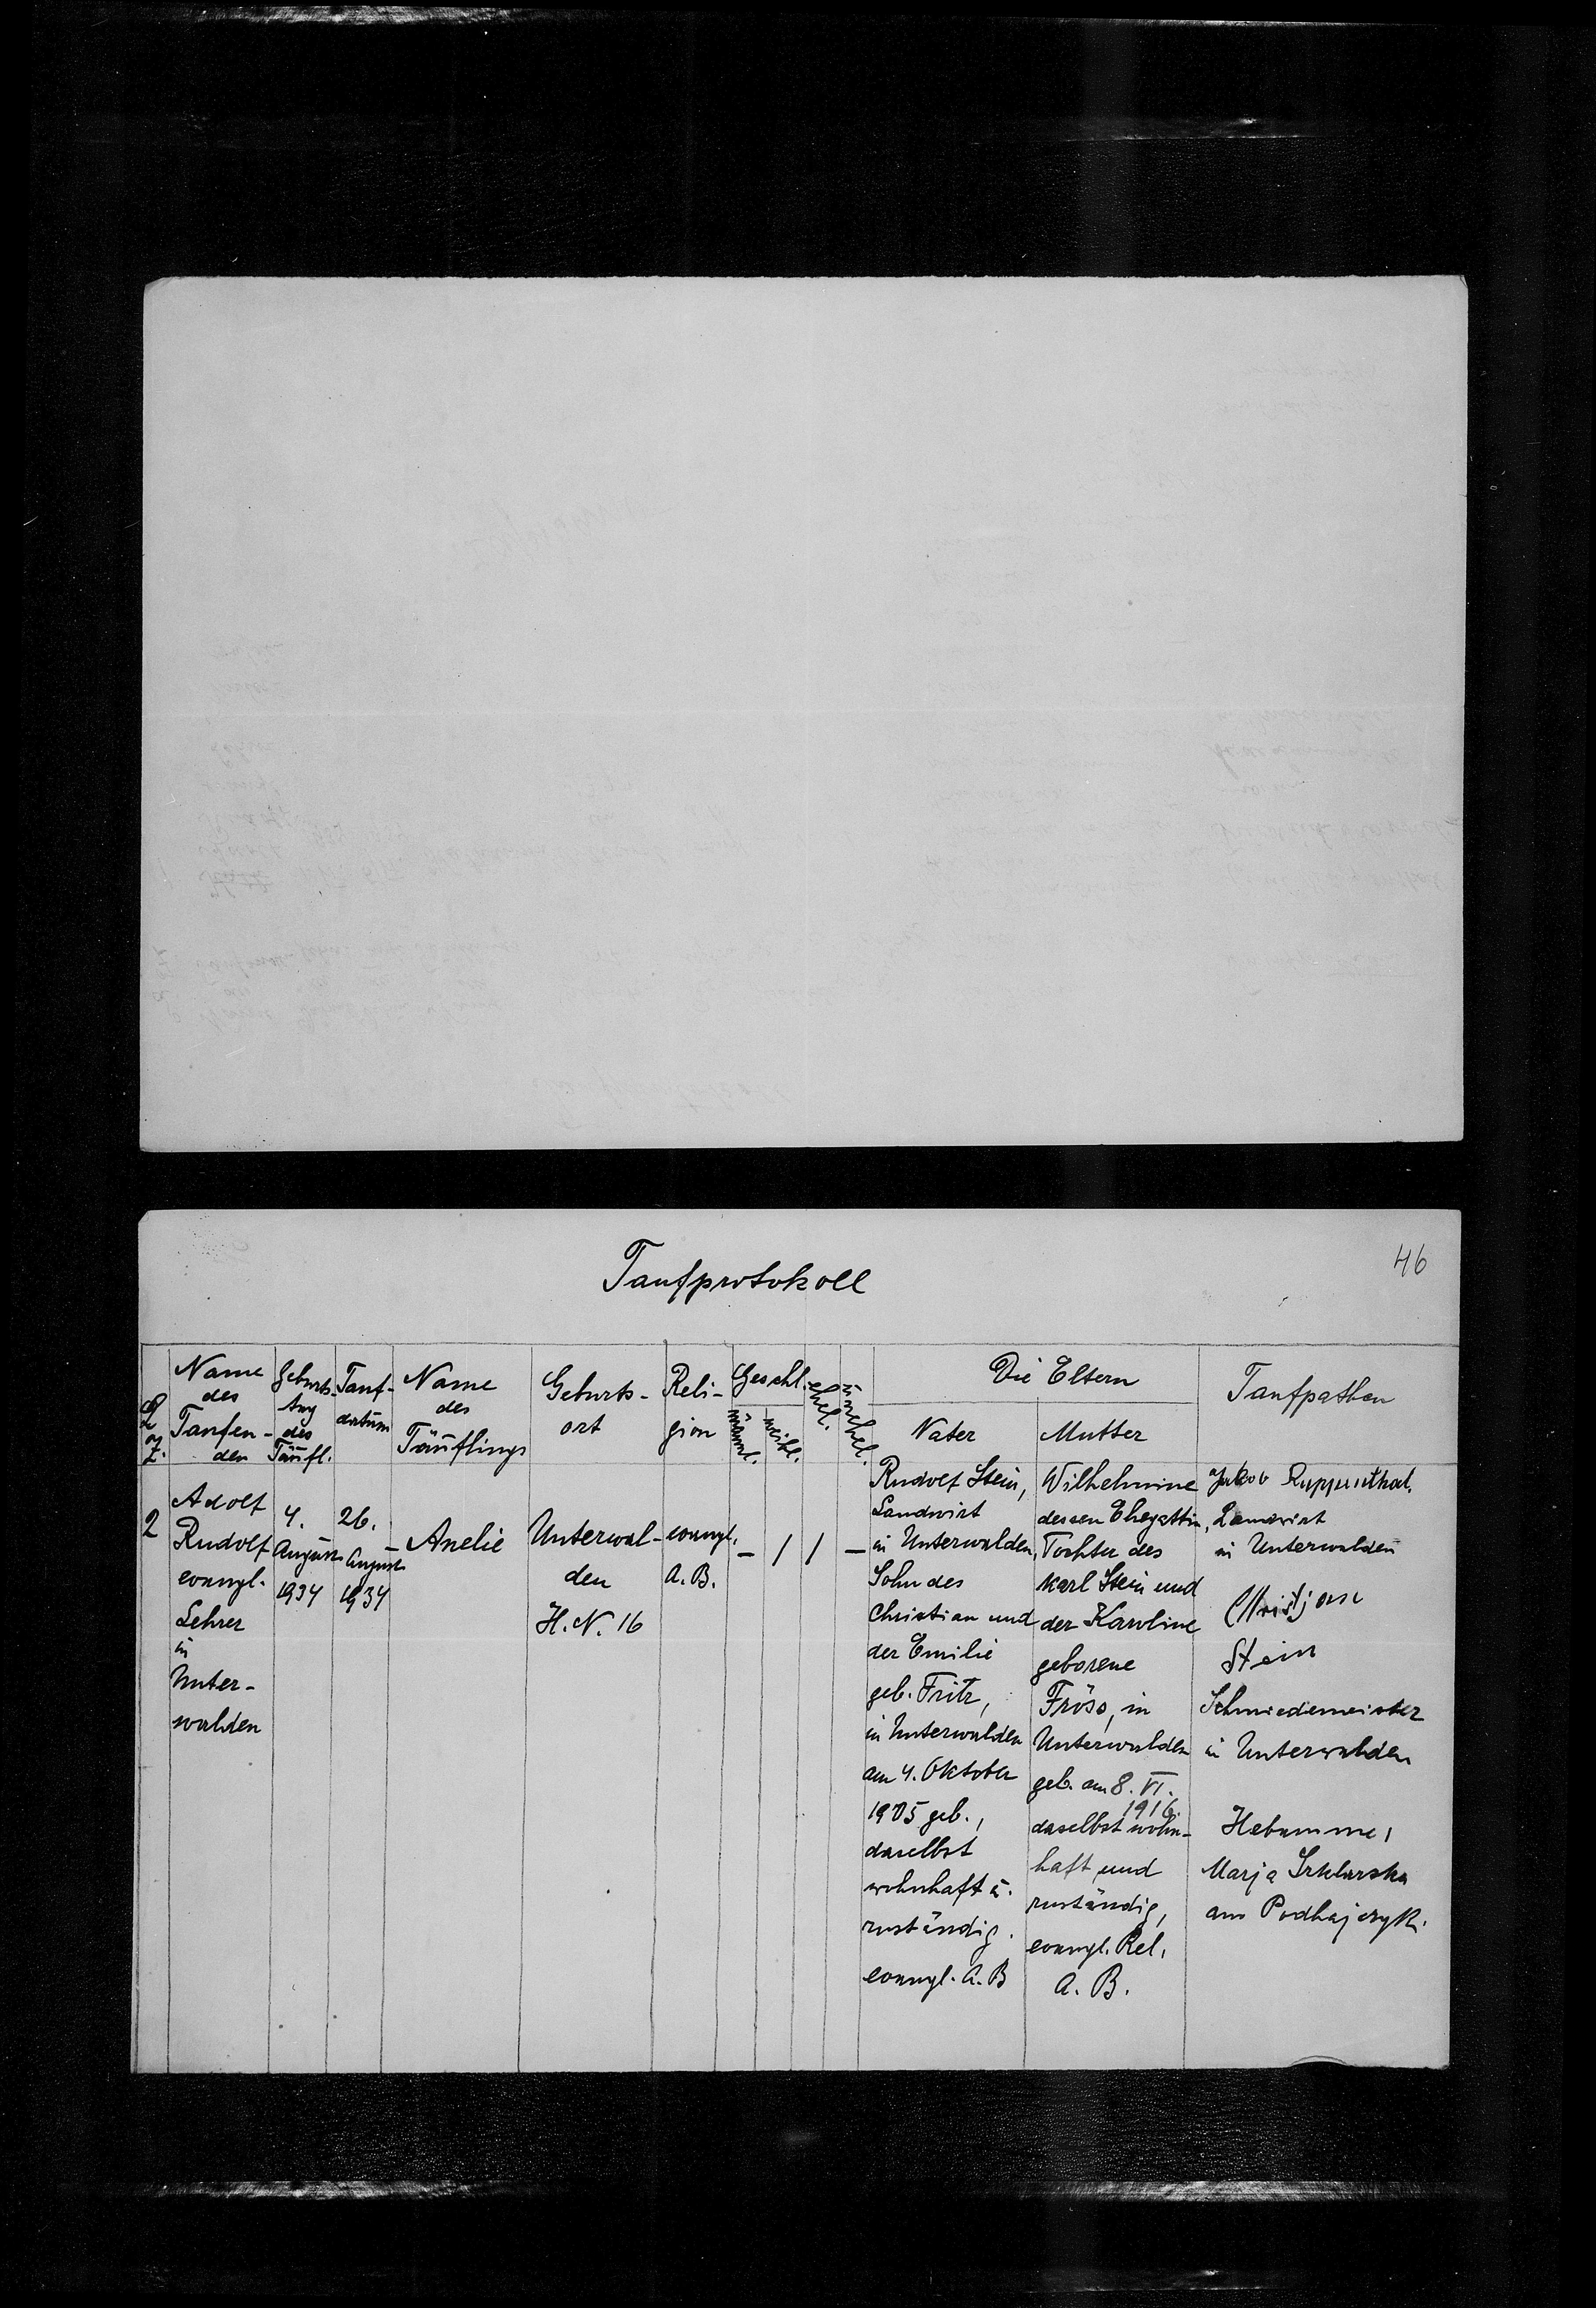 46
Taufprotokoll
Name
des
Taufen-
den
Geburts-
tag
des
Täufl.
Tauf-
datum
Name
des
Täuflings
Geburts-
ort
Reli-
gion
Geschl.
männl.
weibl.
ehel.
unehel.
Die Eltern
Vater
Mutter
Taufpathen
2
Adolf
Rudolf
evangl.
Lehrer
in
Unter-
walden
4.
August
1934
26.
August
1934
Anelie
Unterwal-
den
H. N. 16
evangl.
A. B.
—
/
/
—
Rudolf Stein,
Landwirt
in Unterwalden,
Sohn des
Christian und
der Emilie
geb. Fritz,
in Unterwalden
am 4. Oktober
1905 geb.,
daselbst
wohnhaft u.
zuständig.
evangl. A. B
Wilhelmine
dessen Ehegattin,
Tochter des
Karl Stein und
der Karoline
geborene
Fröss, in
Unterwalden
geb. am 8. VI.
1916.
daselbst wohn-
haft und
zuständig,
evangl. Rel.
A. B.
Jakob Ruppenthal.
Landwirt
in Unterwalden
Christjan
Stein
Schmiedemeister
in Unterwalden
Hebamme,
Marja
aus Podhajczyk.